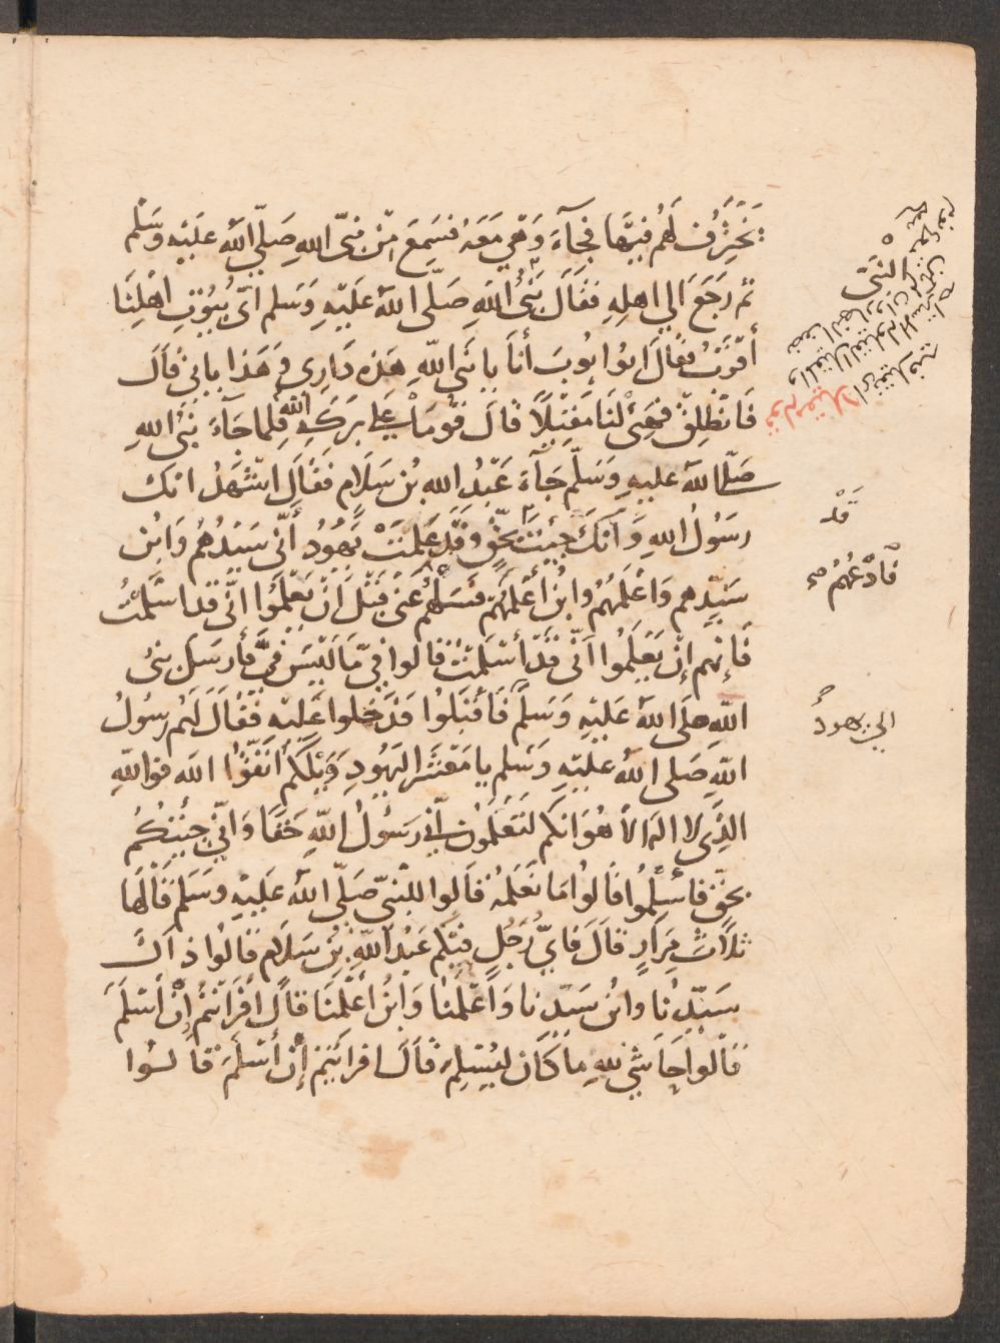 يَخْتَرِفُ لَهُمْ فِيهَا فَجَآءَ وَهِيَ مَعَهُ فَسَمِعَ مِنْ نَبِيِّ اللهِ صَلَّي اللهُ عَلَيْهِ وَسَلَّم
ثم رَجَعَ الي اهلِهِ فَقَالَ نَبِيُّ اللهِ صَلَّى اللهُ عَلَيْهِ وَسَلم اَيُّ بُيُوتِ اهْلِنَا
أَقْرَبُ فقالَ ابُوا يُوبَ أنَا يا نَبِيَ اللّهِ هَذِه دَارِي وَهَذَا بابي قالَ
فَانْطَلِقْ فَهَيِّئْ لَنَا مَقِيْلًا قالَ قُومَا عَلي بَرَكَةِ اللهِ فلما جَآءَ نَبِيُّ اللهِ
صَلَّى اللهُ عليهِ وَسَلَّم جَآءَ عَبْدُ اللهِ بْنُ سَلَامٍ فَقَالَ اشْهَدُ انك
رسُولُ اللهِ وَانَّكَ جِيْتَ بِحَقٍّ وقَدْ عَلِمَتْ يَهُودُ أَنِّي سَيِّدُهُمْ وَابْن
سَيِّدِهم وَاعْلَمُهُمْ وابنُ أَعْلَمِهُمْ فَسَلْهُمْ عَنّي قَبْلَ انْ يَعْلَمُوا انّي قَد اسْلَمْتُ
فَإنهم إنْ يَعْلَمُوا اَنّي قَدْ أَسْلَمْتُ قالوا فِيَّ مَا لَيْسَ فِيَّ فأرسَلَ نبيُّ
اللّهِ صلى اللهُ عَلَيْهِ وَسَلَّم فَأَقْبَلُوا فَدَخلوا عَلَيْهِ فَقَالَ لَهُم رسُولُ
اللهِ صَلى اللهُ عليهِ وَسَلم يا مَعْشَرَ اليَهُودِ وَيْلَكُمْ اتَّقُوا اللهَ فوَاللّهِ
الذِي لا اله الا هُوَ انكم لتَعْلَمُونَ أَنّي رَسُولُ اللّهِ حَقًا وَانّي جِيْتُكُم
بحَقٍّ فأسْلِمُوا قَالُوا مَا نَعْلَمُهُ قالوا للنبيِّ صَلَّي اللهُ عَلَيْهِ وسَلَم قَالَهَا
ثَلَاثَ مِرَارٍ قالَ فَايُّ رَجُلٍ فيكُم عَبْدُ اللّهِ بنُ سَلَامٍ قَالُوا ذاكَ
سَيّدُنا وابْنُ سَيِّدِنا وَاعْلَمُنا وَابنُ اعْلَمِنَا قالَ أَفَرَايْتُمْ إِنْ أَسْلَمَ
قالُوا حَاشي للهِ ما كَان لِيُسْلِمَ قالَ افرايتم إنْ أَسْلَمَ قالُوا
النبيّ
قَدْ
فَادْعُهُمْ صح
الي يهودُ